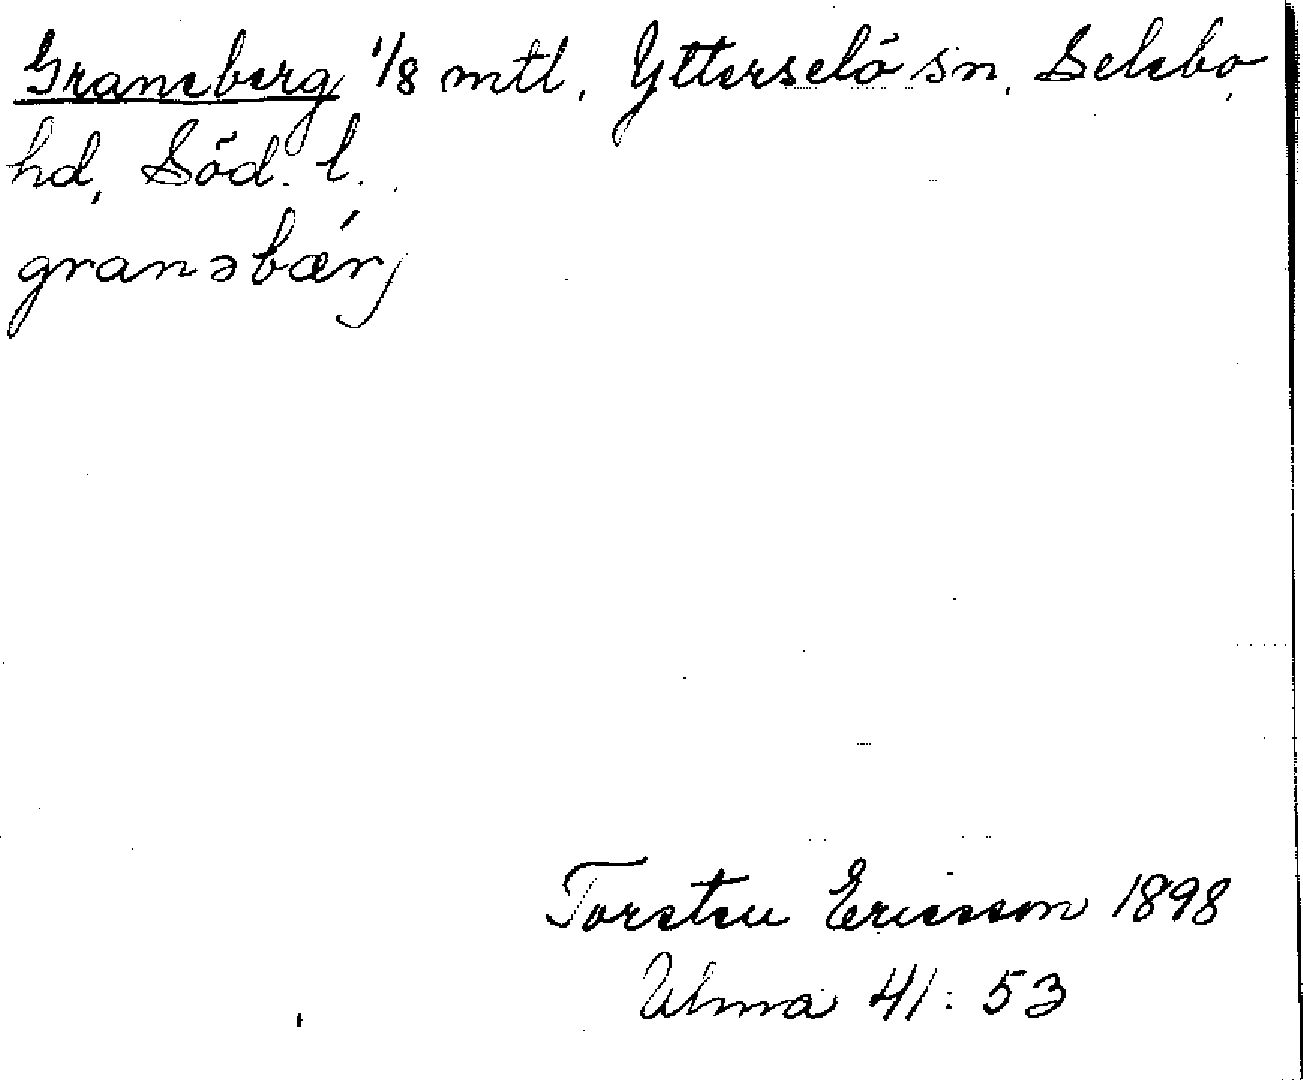 Graneberg 1/8 mtl, Ytterselö sn, Selebo
hd, Söd. l.
granəbǽrj
Torsten Ericsson 1898
Ulma 41:53